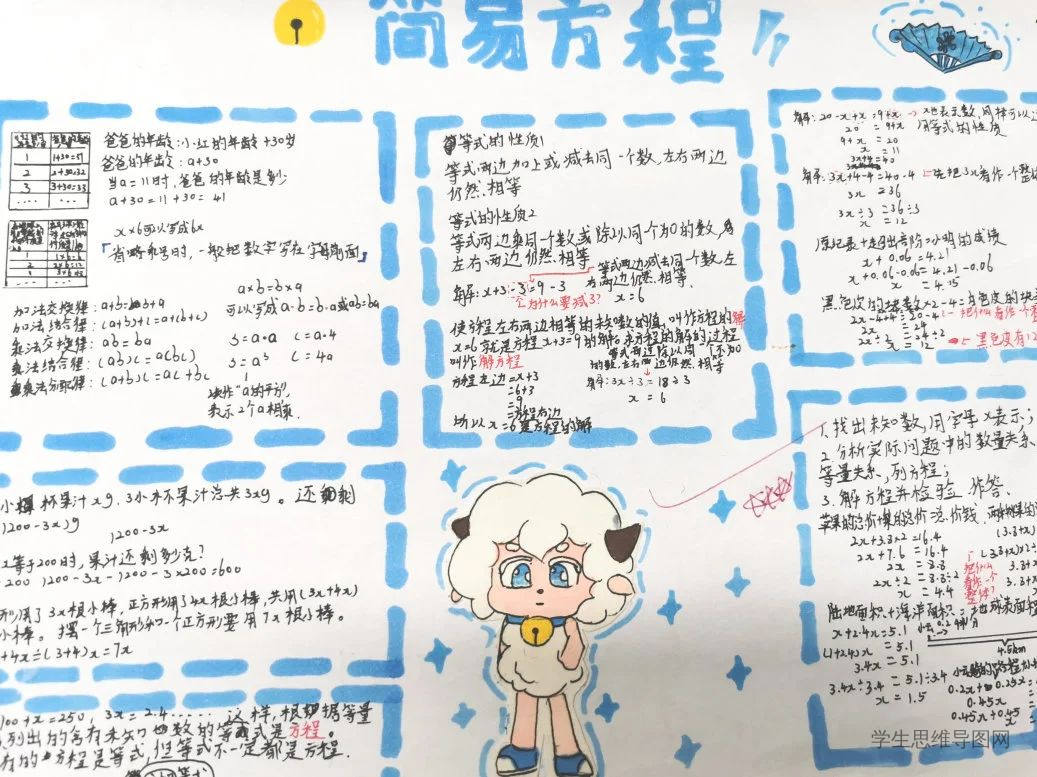 简易方程
爸爸的年龄:小红的年龄+30岁
爸爸的年龄:a+30
当a=11时,爸爸的年龄是多少
a+30=11+30=41
1 1+30=31
2 2+30=32
3 3+30=33
x×6可以写成6x
「省略乘号时,一般把数字写在字母前面」
a×b=b×a
可以写成a·b=b·a或ab=ba
加法交换律:a+b=b+a
加法结合律:(a+b)+c=a+(b+c)
乘法交换律:ab=ba
乘法结合律:(ab)c=a(bc)
乘法分配律:(a+b)c=ac+bc
S=a·a C=a·4
S=a² C=4a
读作"a的平方",
表示2个a相乘.
等式的性质1
等式两边加上或减去同一个数,左右两边
仍然相等
等式的性质2
等式两边乘同一个数或除以同一个不为0的数,
左右两边仍然相等
等式两边减去同一个数,左
右两边仍然相等.
解:x+3-3=9-3
x=6
为什么要减3?
使方程左右两边相等的未知数的值,叫作方程的解
x=6就是方程x+3=9的解。求方程的解的过程
叫作解方程
等式两边除以同一个不为0
的数,左右两边仍然相等
方程左边=x+3
=6+3
=9
=方程右边
所以x=6是方程的解
解:3x÷3=18÷3
x=6
解:20-x+x=9+x
20=9+x
9+x=20
x=11
用等式的性质
3x+4=40
解:3x+4-4=40-4
先把3x看作一个整体
3x=36
3x÷3=36÷3
x=12
原纪录+超出部分=小明的成绩
x+0.06=4.21
x+0.06-0.06=4.21-0.06
x=4.15
2x-4+4=20+4
2x=24
2x÷2=24÷2
x=12
黑色皮有12
1.找出未知数,用字母x表示;
2.分析实际问题中的数量关系
等量关系,列方程;
3.解方程并检验作答.
2x+3.8×2=16.4
2x+7.6=16.4
2x=8.8
2x÷2=8.8÷2
x=4.4
把什么
看作一个
整体?
陆地面积+海洋面积=地球表面积
x+2.4x=5.1
(1+2.4)x=5.1
3.4x=5.1
3.4x÷3.4=5.1÷3.4
x=1.5
4.5km
0.45x
杯果汁xg,3小杯果汁总共3xg。还剩
(1200-3x)g
1200-3x
x等于200时,果汁还剩多少克?
1200-3x=1200-3×200=600
形用了3x根小棒,正方形用了4x根小棒,共用(3x+4x)
小棒。摆一个三角形和一个正方形要用7x根小棒。
+4x=(3+4)x=7x
100+x=250,3x=2.4……这样,根据等量
列出的含有未知数的等式是方程。
有的方程是等式,但等式不一定都是方程.
学生思维导图网